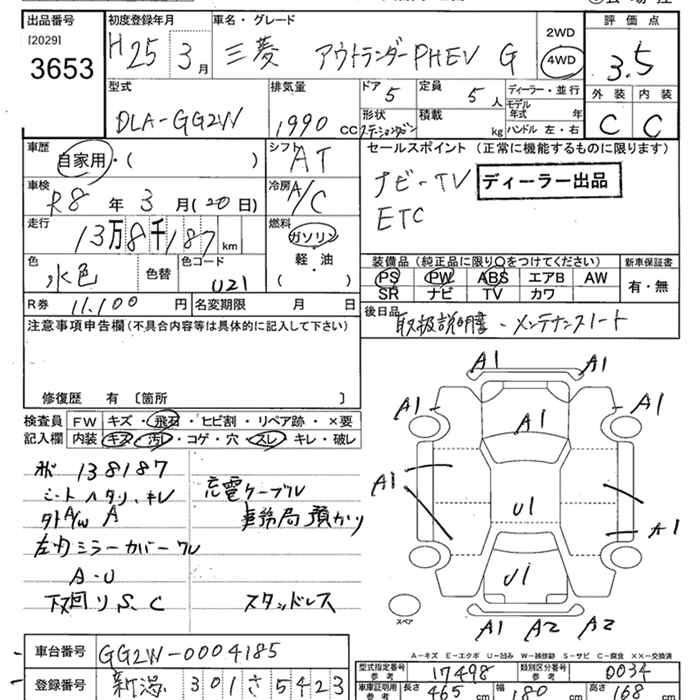 出品番号
[2029]
3653
初度登録年月
H25 3月
車名・グレード
三菱 アウトランダーPHEV G
2WD
4WD
評価点
3.5
外装 内装
C C
型式
DLA-GG2W
排気量
1990 CC
ドア 5
定員 5人
形状 ステーションワゴン
積載 kg
ディーラー・並行
モデル年式 年
ハンドル 左・右
車歴
自家用・( )
シフト AT
車検
R8年3月(20日)
冷房 A/C
走行
13万8千187km
燃料
ガソリン
軽・油
( )
色
水色
色替
色コード
U21
R券 11,100円
名変期限 月 日
セールスポイント (正常に機能するものに限ります)
ナビ-TV
ETC
ディーラー出品
装備品 (純正品に限り○をつけてください)
PS PW ABS エアB AW
SR ナビ TV カワ
新車保証書
有・無
後日品
取扱説明書・メンテナンスノート
注意事項申告欄 (不具合内容等は具体的に記入して下さい)
修復歴 有 〔箇所 〕
検査員記入欄
FW キズ・飛石・ヒビ割・リペア跡・×要
内装 キズ・汚レ・コゲ・穴・スレ・キレ・破レ
138187
シートヘタリ、キレ
外A/W A
左右ミラーカバーワレ
A・U
下回りS、C
充電ケーブル
事務局預かり
スタッドレス
A1 A1
A1 A1 A1
A1
U1 A1
U1
A1 A2 A2
スペア
A-キズ E-エクボ U-凹み W-補修跡 S-サビ C-腐食 ××-交換済
車台番号 GG2W-0004185
登録番号 新潟 301 さ 5423
型式指定番号 参考 17498
類別区分番号 参考 0034
車庫証明用 参考 長さ 465cm 幅 180cm 高さ 168cm